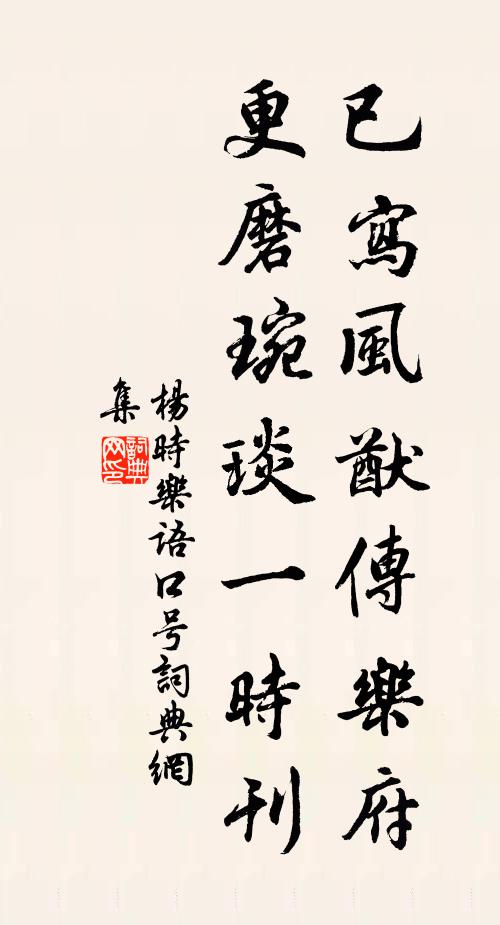 已寫風猷傳樂府
更磨琬琰一時刊
楊時樂語口号詞典網
集
詞典
网印